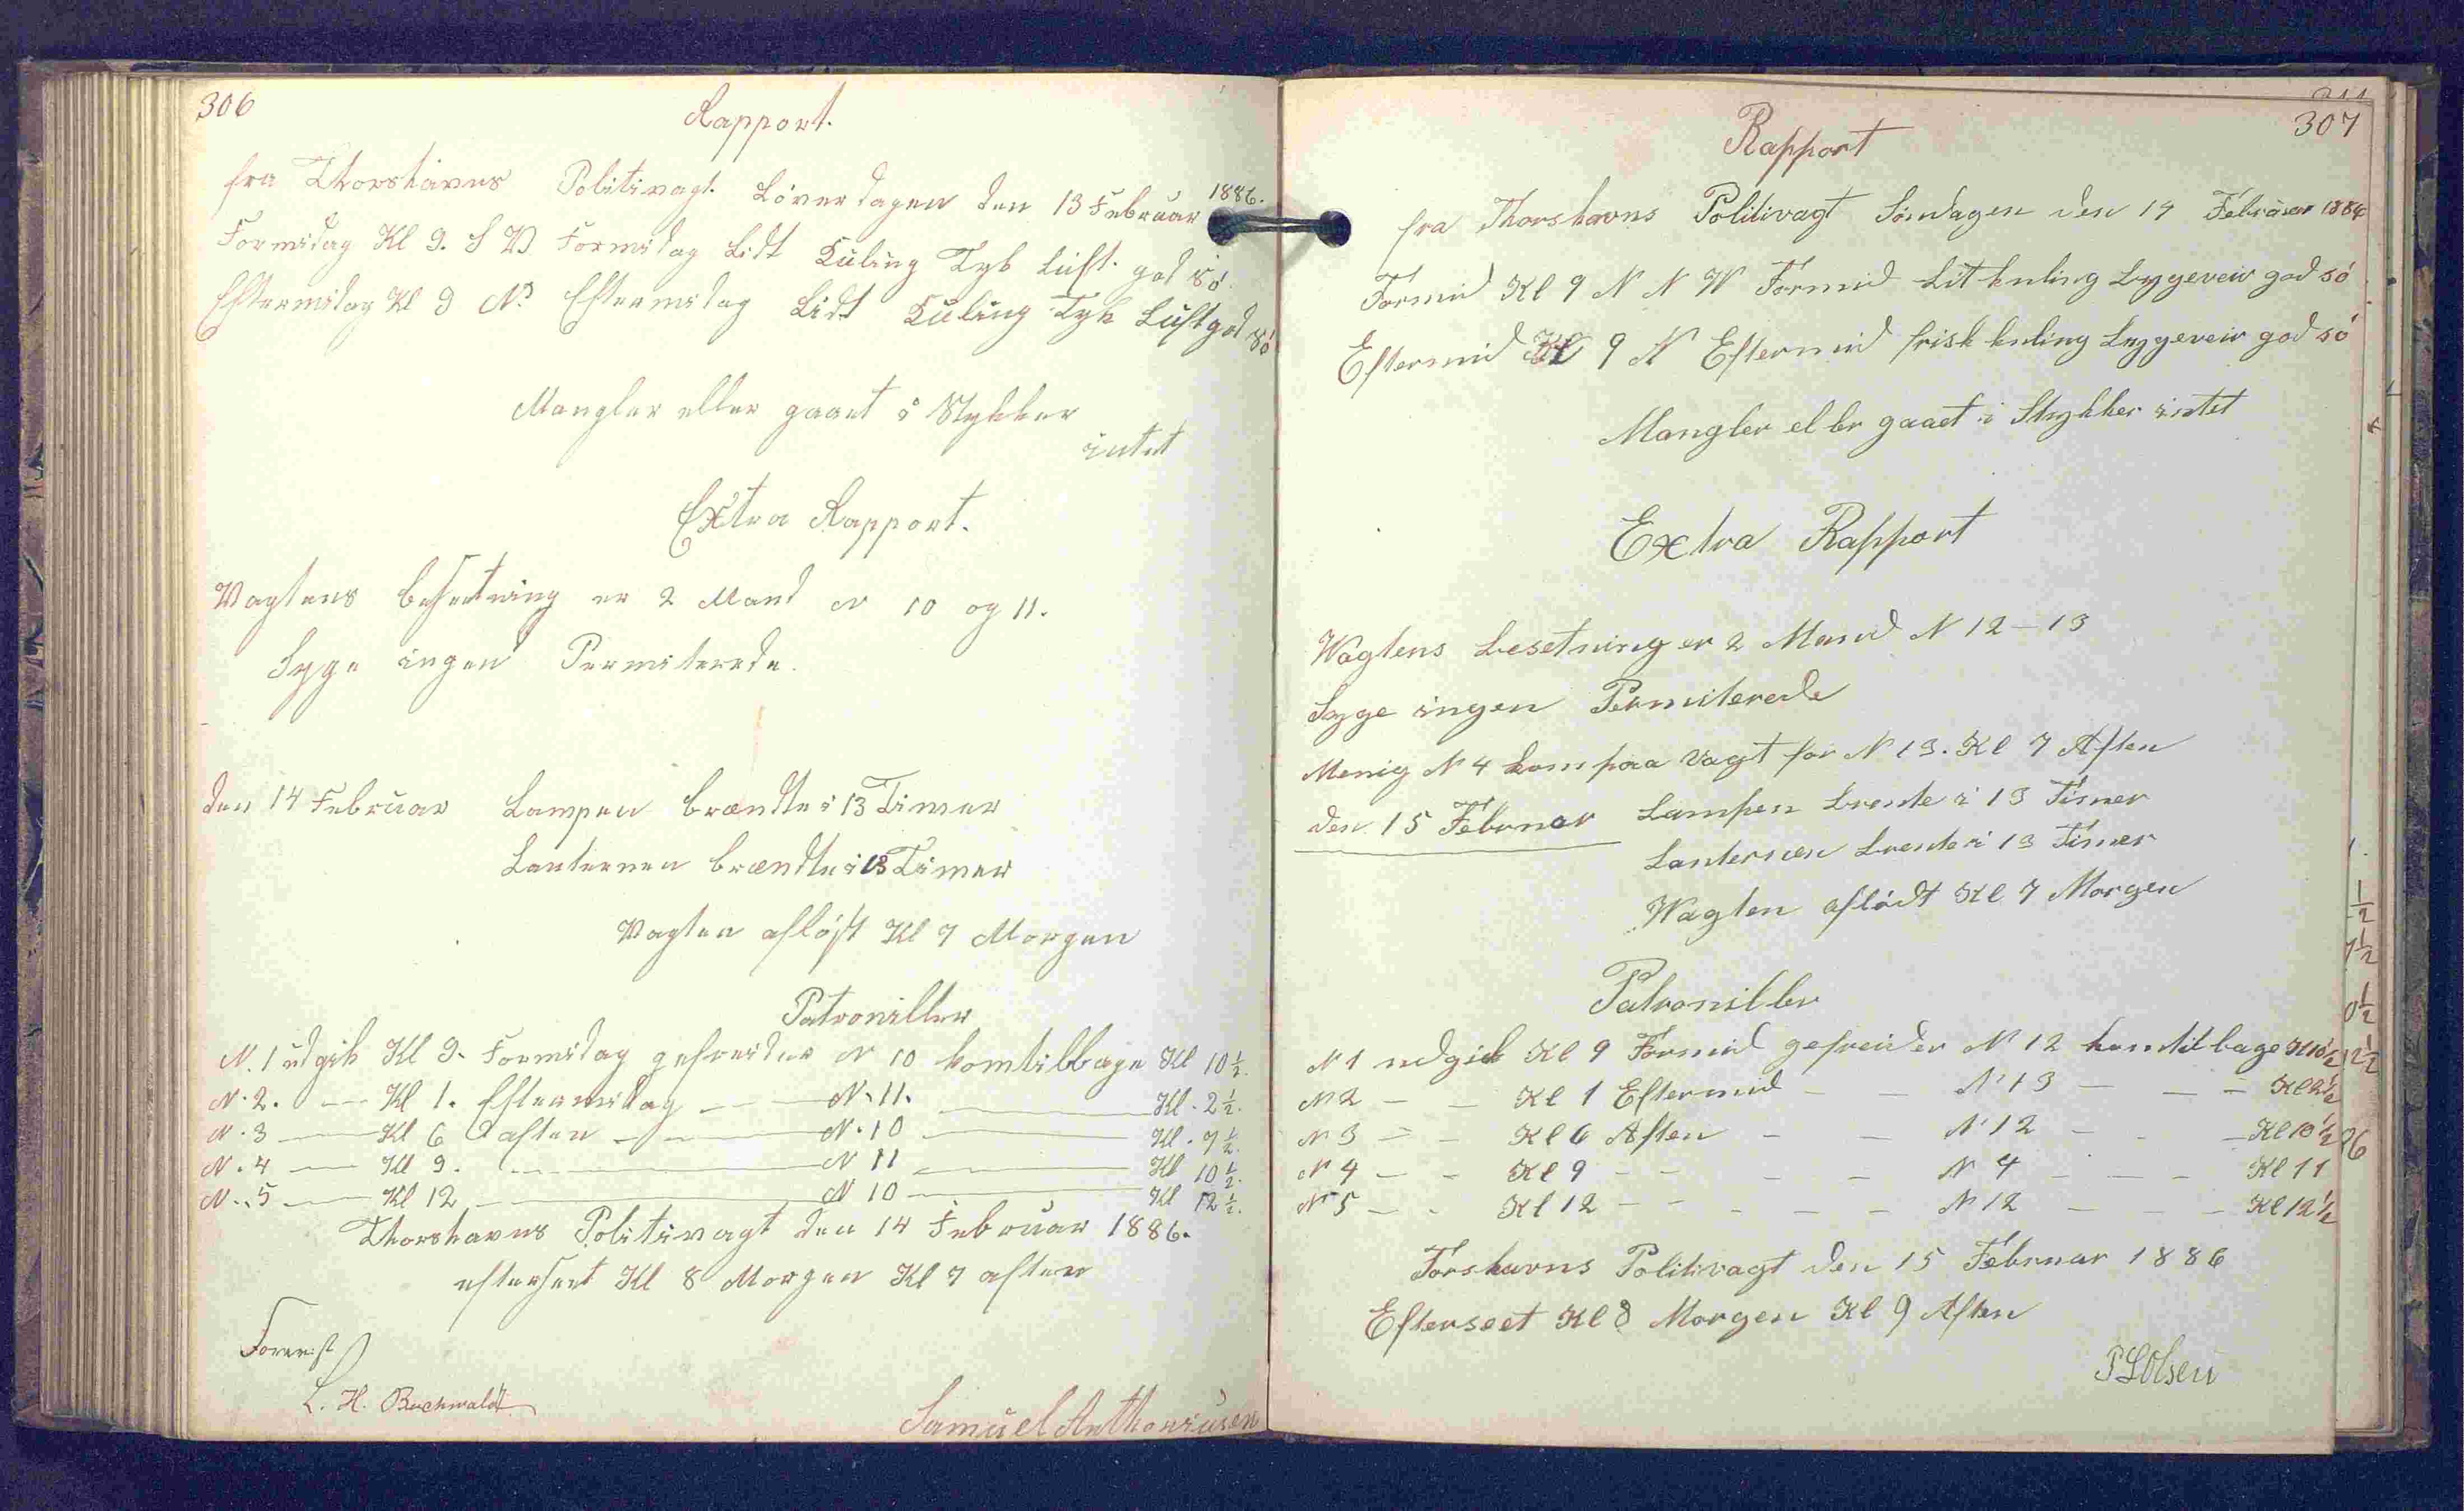 306
Rapport.
fra Thorshavns Politivagt. Löverdagen den 13 Februar 1886.
Formidag Kl 9. S W Formidag Lidt Kuling Tyk Luft. god sö.
Eftermidag Kl 9 N. Eftermidag Lidt Kuling Tyk Luft god sö
Mangler eller gaaet i Stykker
intet
Extra Rapport.
Wagtens besætning er 2 Mand N 10 og 11.
Syge ingen Permiterede.
den 14 Februar Lampen brændte i 13 Timer
Lanternen brændte i 13 Timer
Wagten aflöst Kl 7 Morgen
Patroniller
N. 1 udgik Kl 9. Formidag gefreider N 10 kom tilbage Kl 10 1/2.
N. 2. — Kl 1. Eftermidag — — N. 11. — Kl. 2 1/2.
N. 3 — Kl 6 aften — — N. 10 — Kl. 7 1/2.
N. 4 — Kl 9. — N 11 — Kl 10 1/2.
N. 5 — Kl 12 — N 10 — Kl 12 1/2.
Thorshavns Politivagt den 14 Februar 1886.
efterseet Kl 8 Morgen Kl 7 aften
Forevist
L. H. Buchwaldt
Samuel Anthoniusen
307
Rapport
fra Thorshavns Politivagt Söndagen den 14 Februar 1886
Formid Kl 9 N N W Formid Lit kuling Byggeveir god só
Eftermid Kl 9 N Eftermid frisk kuling Byggeveir god só
Mangler eller gaaet i Stykker intet
Extra Rapport
Wagtens besetning er 2 Mand N 12 – 13
Syge ingen Permiterede
Menig N 4 kom paa Vagt for N 13. Kl 7 Aften
den 15 Februar Lampen brente i 13 Timer
Lanternen brente i 13 Timer
Wagten aflödt Kl 7 Morgen
Patroniller
N 1 udgick Kl 9 Formid gefreider N 12 kom tilbage Kl 10 1/2
N 2 – – Kl 1 Eftermid – – N 13 – – – Kl 2 1/2
N 3 – – Kl 6 Aften – – N 12 – – – Kl 10 1/2
N 4 – – Kl 9 – – – – N 4 – – – Kl 11
N 5 – – Kl 12 – – – – – N 12 – – – Kl 12 1/2
Torshavns Politivagt den 15 Februar 1886
Efterseet Kl 8 Morgen Kl 9 Aften
P L Olsen